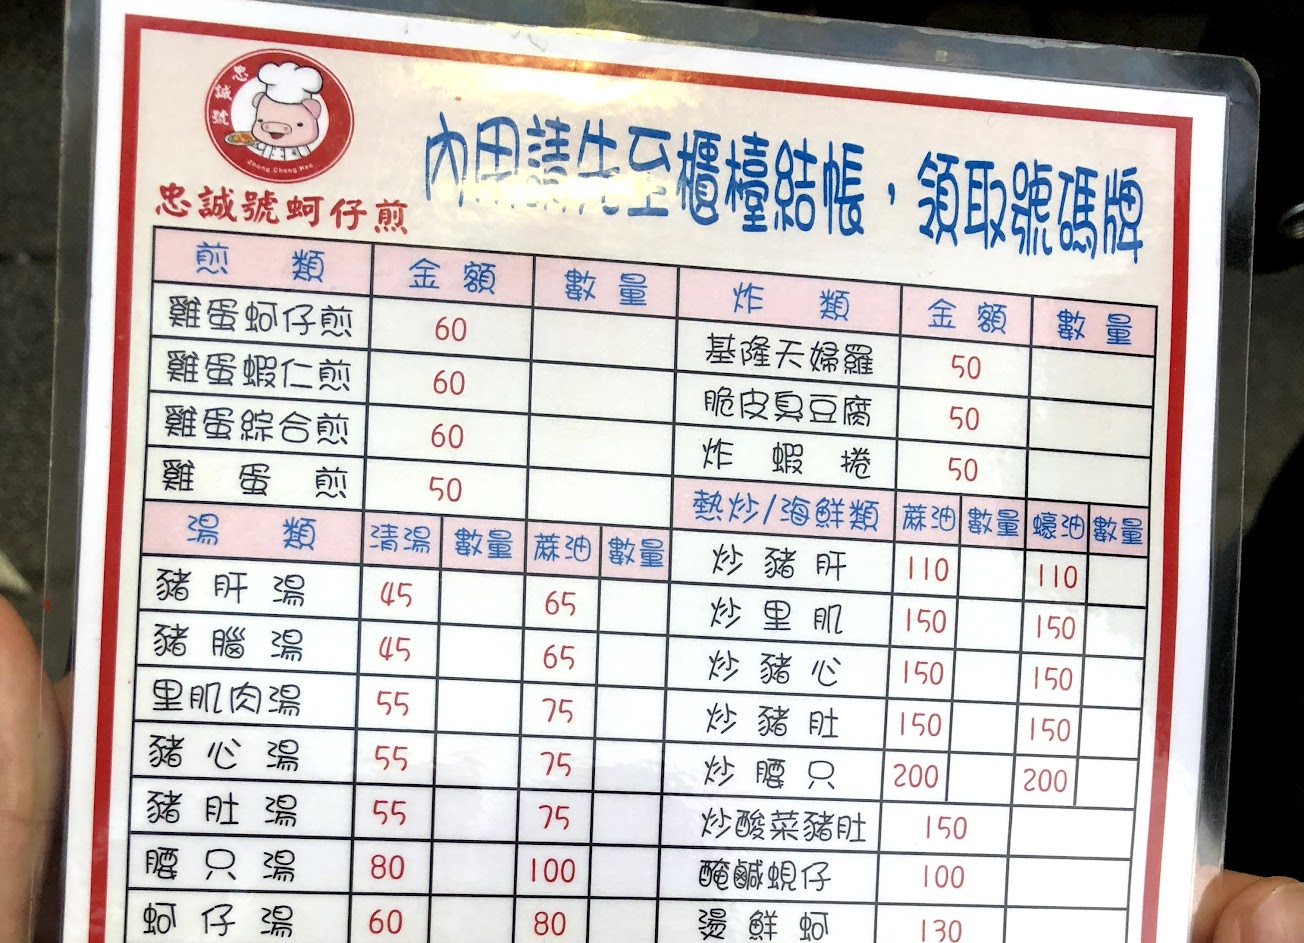 忠誠號
Zhong Cheng Hao
忠誠號蚵仔煎
內用請先至櫃檯結帳,領取號碼牌
煎類 金額 數量
雞蛋蚵仔煎 60
雞蛋蝦仁煎 60
雞蛋綜合煎 60
雞蛋煎 50
湯類 清湯 數量 蔴油 數量
豬肝湯 45 65
豬腦湯 45 65
里肌肉湯 55 75
豬心湯 55 75
豬肚湯 55 75
腰只湯 80 100
蚵仔湯 60 80
炸類 金額 數量
基隆天婦羅 50
脆皮臭豆腐 50
炸蝦捲 50
熱炒/海鮮類 蔴油 數量 蠔油 數量
炒豬肝 110 110
炒里肌 150 150
炒豬心 150 150
炒豬肚 150 150
炒腰只 200 200
炒酸菜豬肚 150
醃鹹蜆仔 100
燙鮮蚵 130